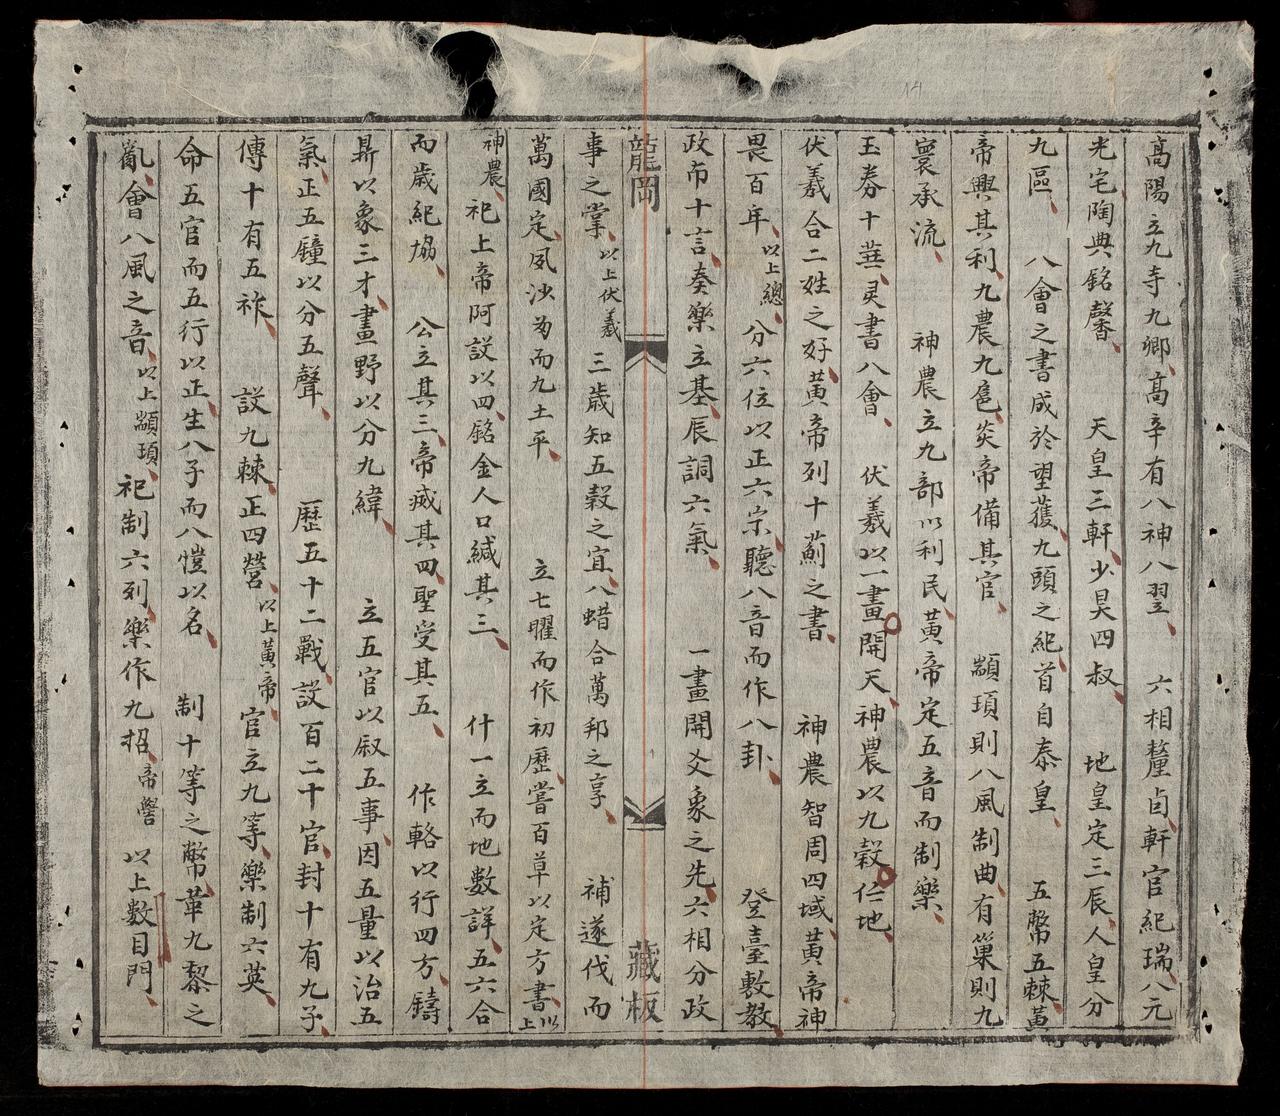 高陽立九寺九卿高辛有八神八翌　六相釐卣軒官紀瑞八元
光宅陶典銘馨　天皇三軒少昊四叔　地皇定三辰人皇分
九區　八會之書成於望獲九頭之紀首自泰皇　五幣五棘黃
帝興其利九農九扈炎帝備其官　顓頊則八風制曲有巢則九
寰承流　神農立九部以利民黃帝定五音而制樂
玉券十華灵書八會　伏羲以一畫開天神農以九穀任地
伏羲合二姓之好黃帝列十薊之書　神農智周四域黃帝神
畏百年以上總分六位以正六宗聽八音而作八卦　登臺敷教
政布十言奏樂立基辰詞六氣　一畫開爻象之先六相分政
龍岡　藏板
事之掌以上伏羲三歲知五穀之宜八蜡合萬邦之享　補遂伐而
萬國定夙沙為而九土平　立七曜而作初歷嘗百草以定方書以上
神農祀上帝阿設以四銘金人口緘其三　什一立而地數詳五六合
而歲紀協　公立其三帝威其四聖受其五　作輅以行四方鑄
鼎以象三才畫野以分九緯　立五官以叙五事因五量以治五
氣正五鐘以分五聲　歷五十二戰設百二十官封十有九子
傳十有五祚　設九棘正四營以上黃帝官立九等樂制六英
命五官而五行以正生八子而八愷以名　制十等之幣革九黎之
亂會八風之音以上顓頊祀制六列樂作九招帝嚳　以上數目門